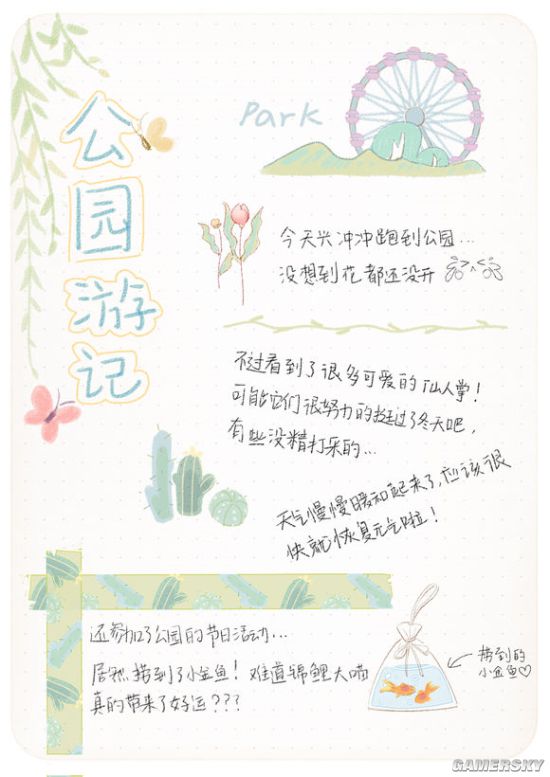 公园游记
Park
今天兴冲冲跑到公园...
没想到花都还没开
不过看到了很多可爱的仙人掌！
可能它们很努力的挺过了冬天吧，
有些没精打采的...
天气慢慢暖和起来了，应该很
快就恢复元气啦！
还参加了公园的节日活动...
居然捞到了小金鱼！难道锦鲤大喵
真的带来了好运？？？
捞到的
小金鱼♡
GAMERSKY